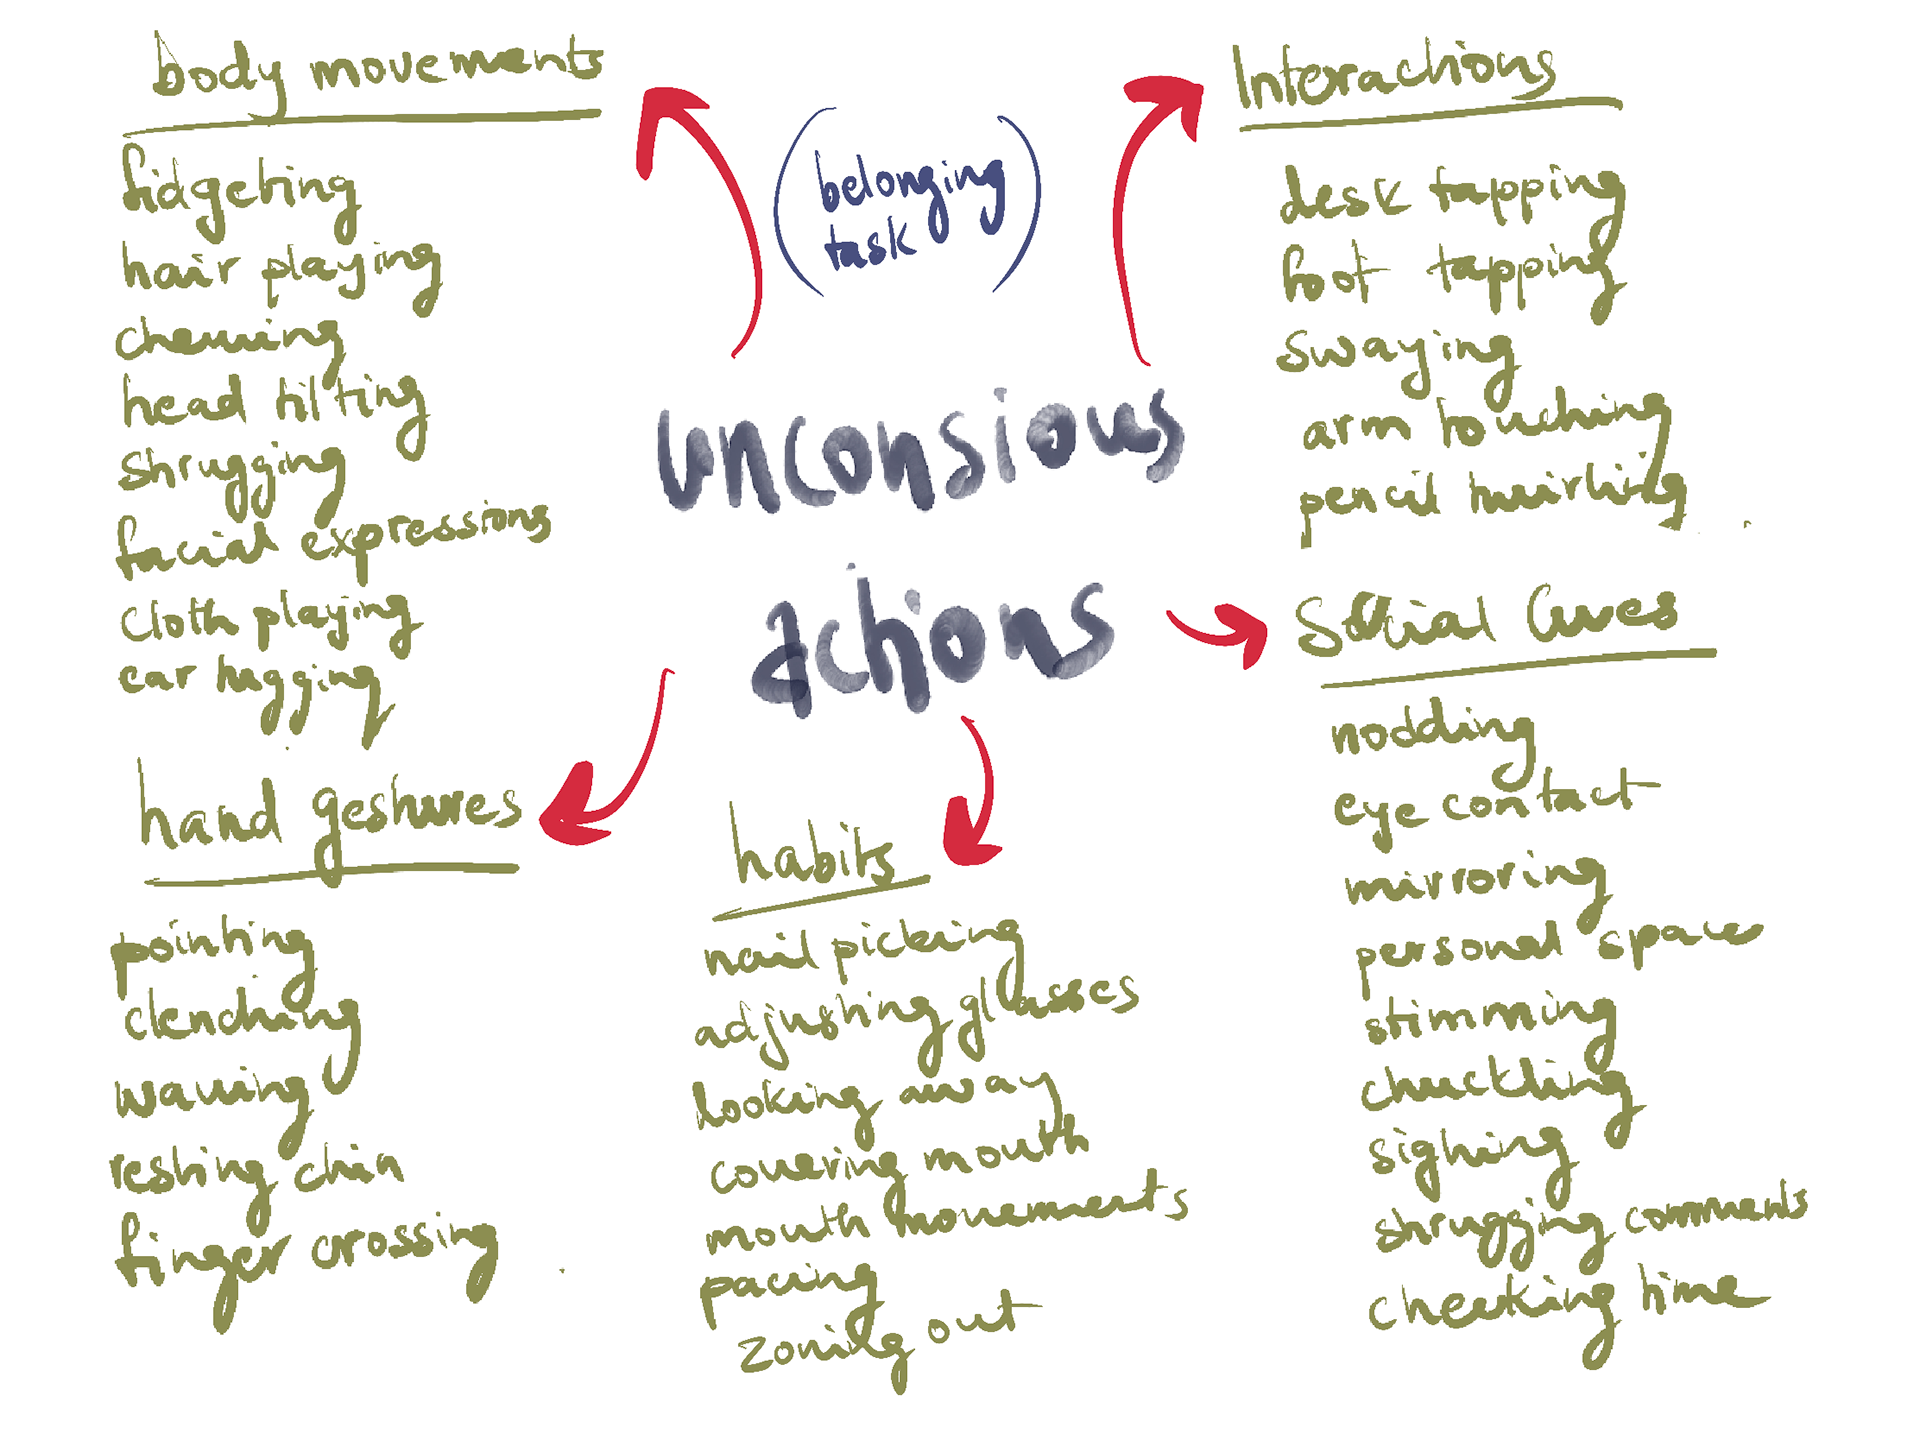 body movements
fidgeting
hair playing
chewing
head tilting
shrugging
facial expressions
cloth playing
ear tugging
(belonging
task)
unconsious
actions
Interactions
desk tapping
foot tapping
swaying
arm touching
pencil twirling
Social Cues
nodding
eye contact
mirroring
personal space
stimming
chuckling
sighing
shrugging comments
checking time
hand gestures
pointing
clenching
waving
resting chin
finger crossing
habits
nail picking
adjusting glasses
looking away
covering mouth
mouth movements
pacing
zoning out